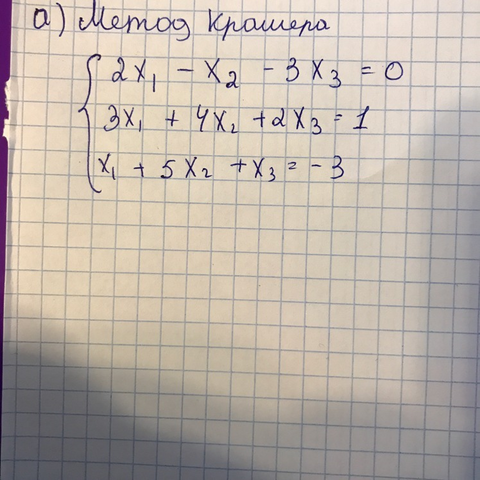 а) Метод Крамера
2x₁ - x₂ - 3x₃ = 0
3x₁ + 4x₂ + 2x₃ = 1
x₁ + 5x₂ + x₃ = -3